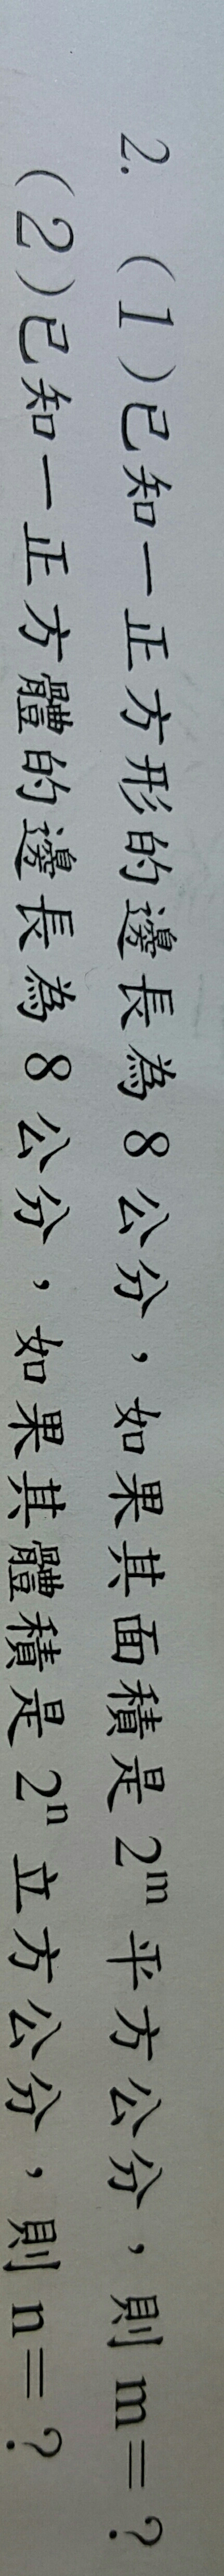 2. (1)已知一正方形的邊長為 8 公分，如果其面積是 2ᵐ 平方公分，則 m＝？
(2)已知一正方體的邊長為 8 公分，如果其體積是 2ⁿ 立方公分，則 n＝？